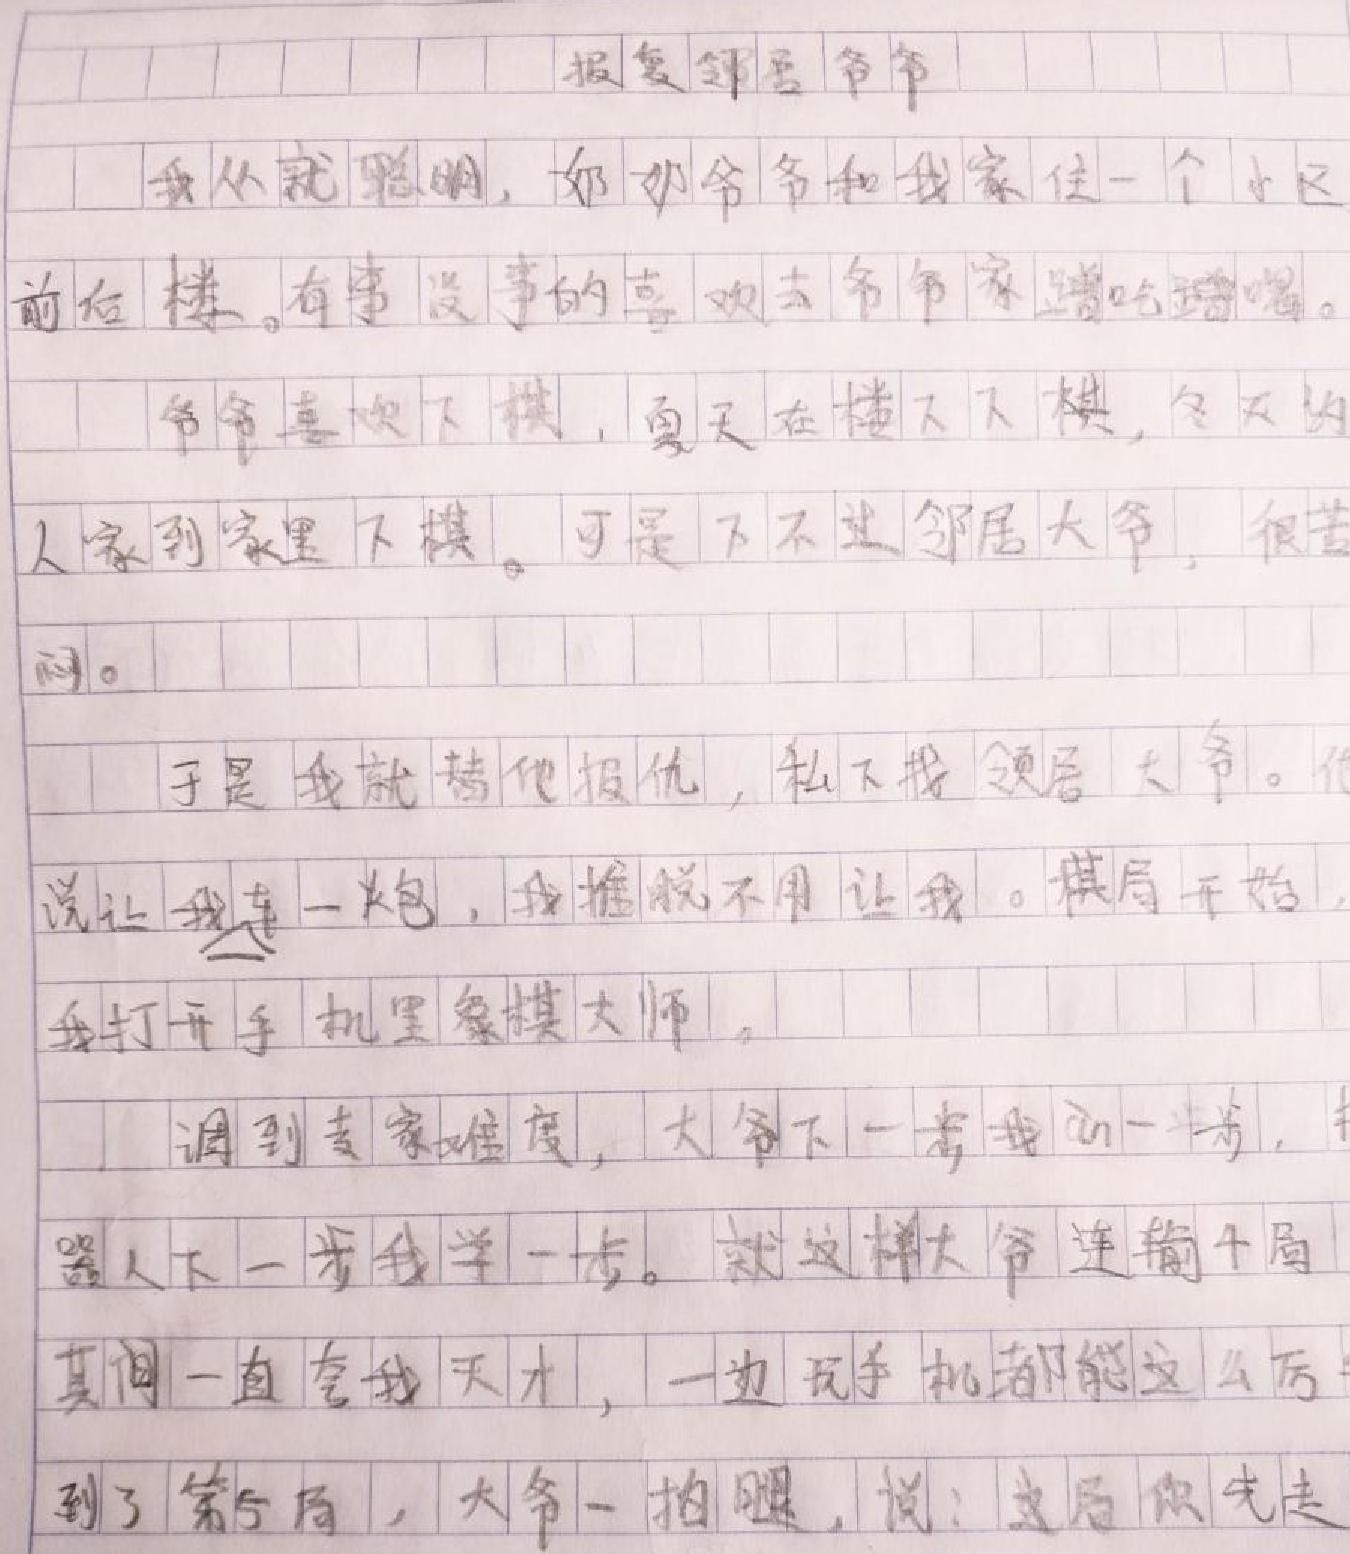 报复邻居爷爷
我从就聪明，奶奶爷爷和我家住一个小区
前后楼。有事没事的喜欢去爷爷家蹭吃蹭喝。
爷爷喜欢下棋，夏天在楼下下棋，冬天约
人家到家里下棋。可是下不过邻居大爷，很苦
闷。
于是我就替他报仇，私下找领居大爷。他
说让我车一炮，我推脱不用让我。棋局开始，
我打开手机里象棋大师。
调到专家难度，大爷下一步我一步，
器人下一步我学一步。就这样大爷连输4局
其间一直夸我天才，一边玩手机都能这么厉
到了第5局，大爷一拍腿，说：这局你先走